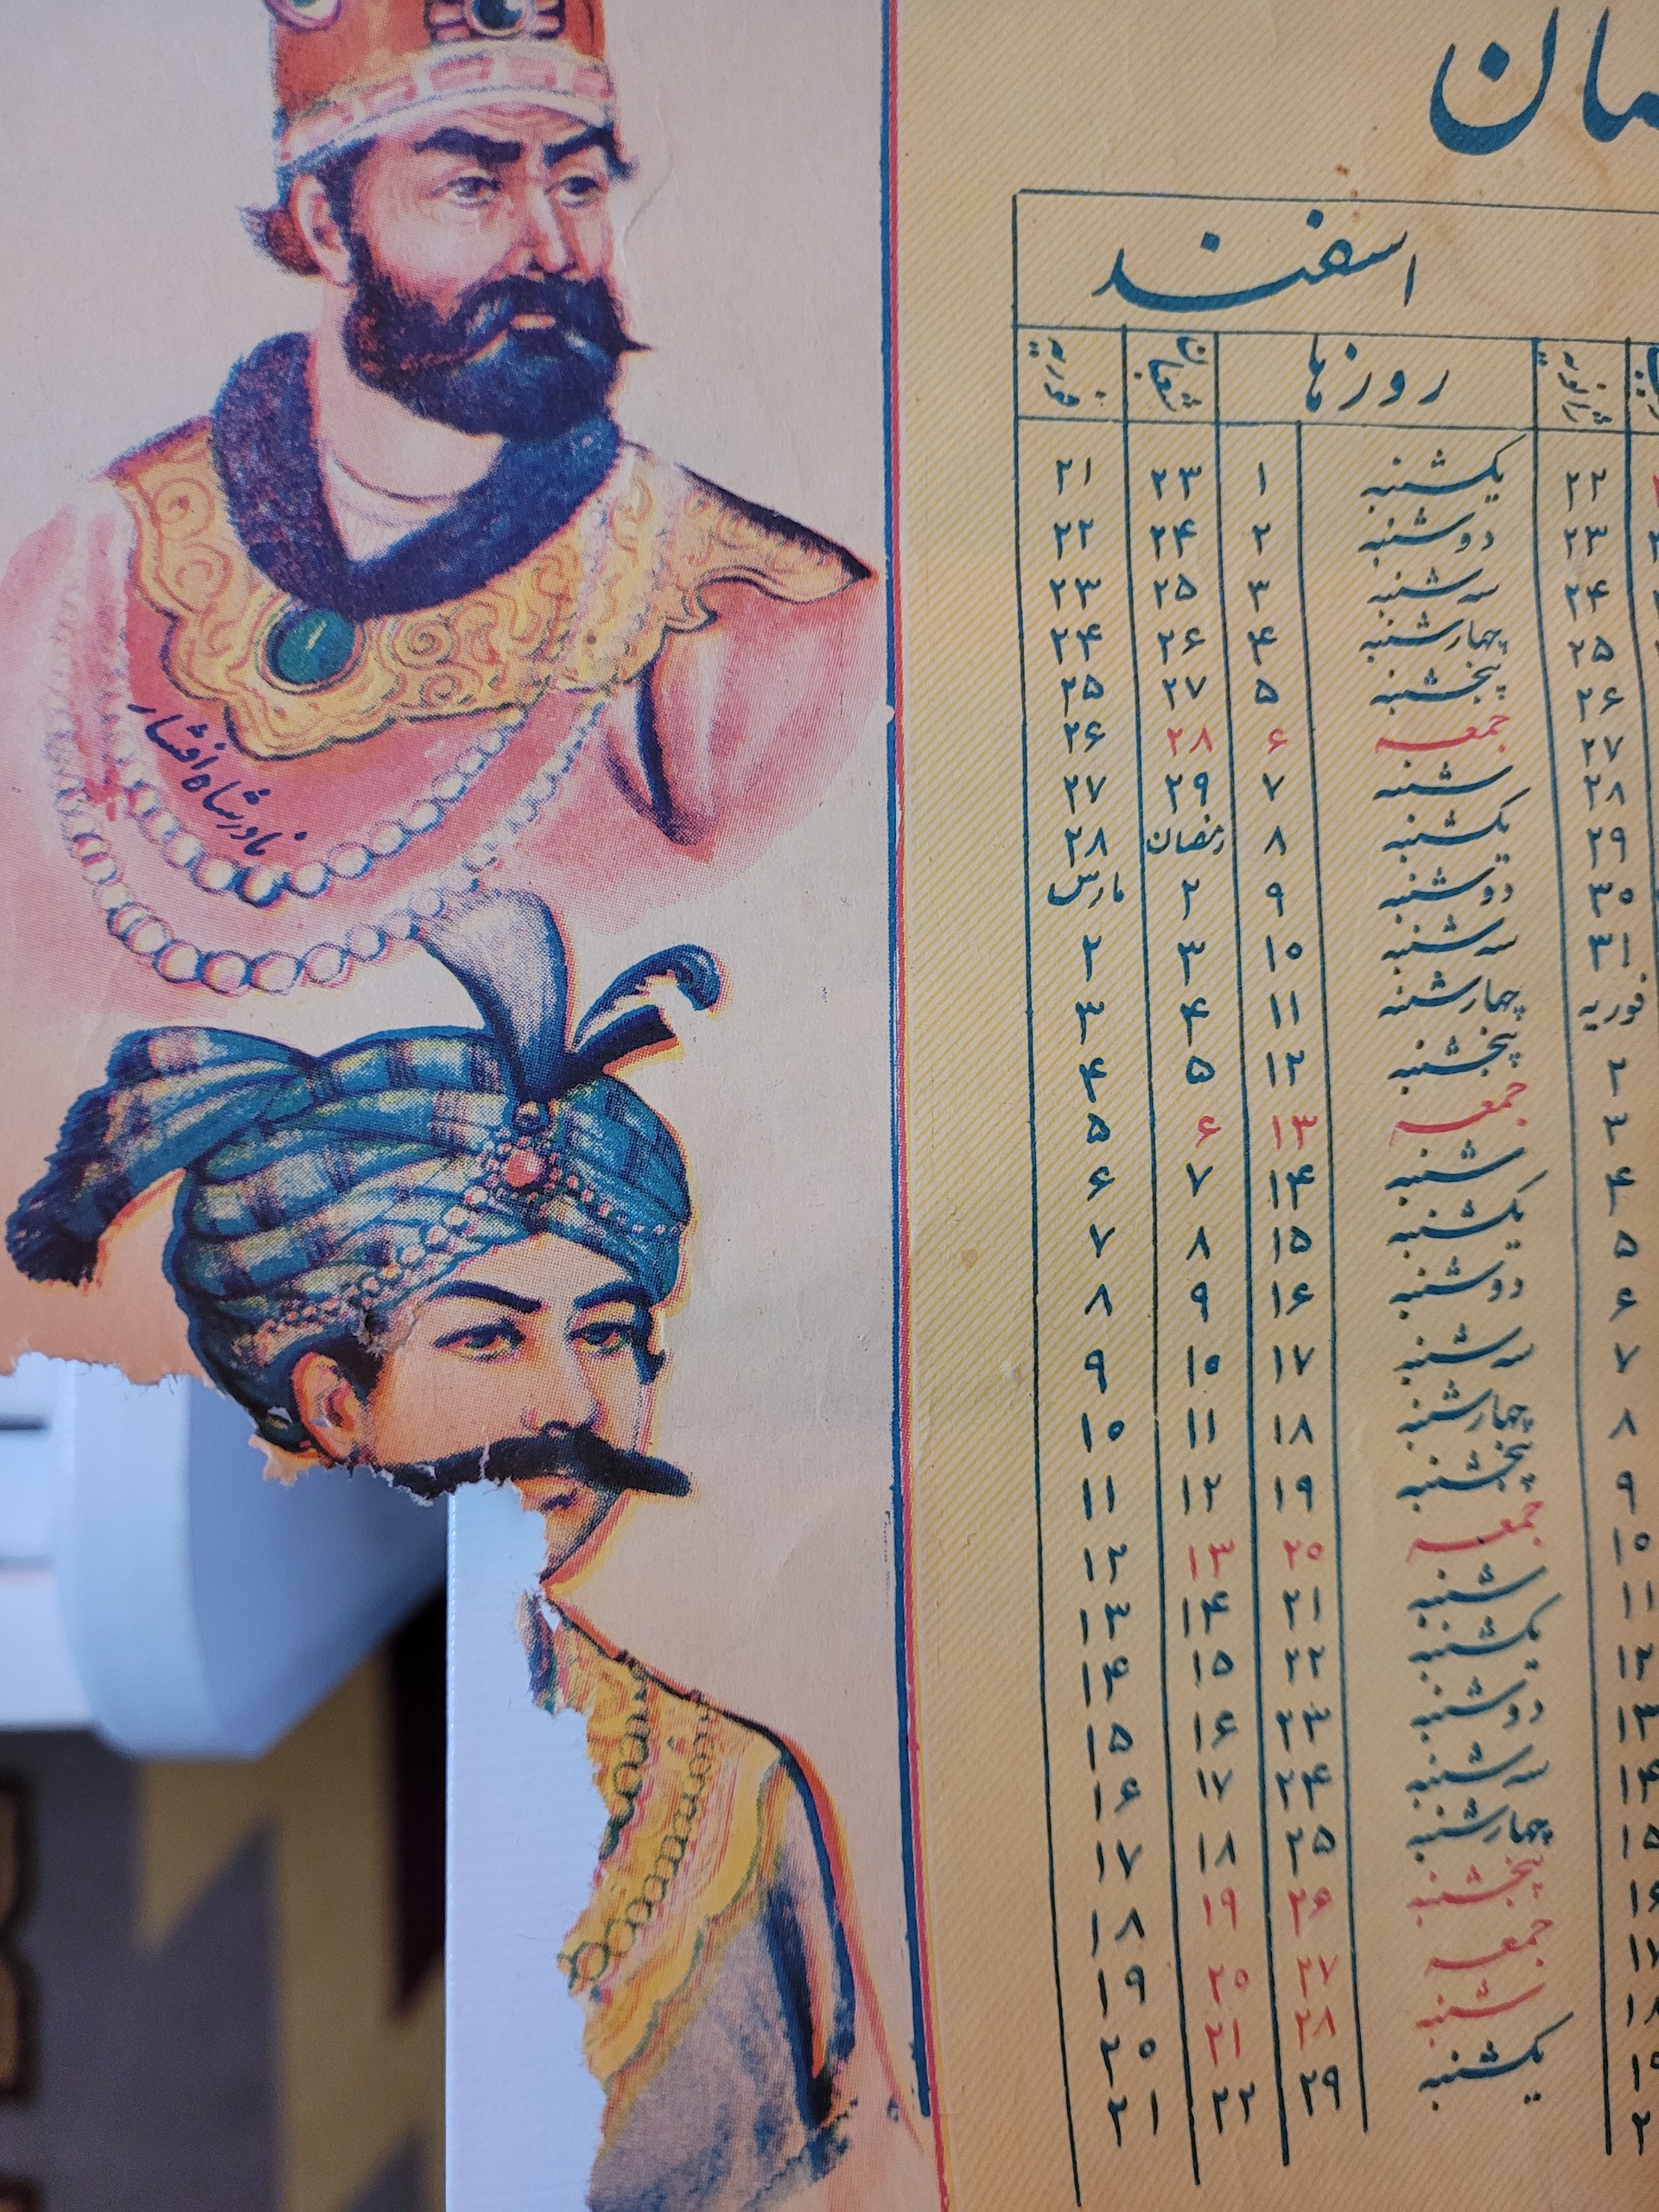 اسفند
ژانویه روزها شعبان فوریه
۲۲ یکشنبه ۱ ۲۳ ۲۱
۲۳ دوشنبه ۲ ۲۴ ۲۲
۲۴ سه شنبه ۳ ۲۵ ۲۳
۲۵ چهارشنبه ۴ ۲۶ ۲۴
۲۶ پنجشنبه ۵ ۲۷ ۲۵
۲۷ جمعه ۶ ۲۸ ۲۶
۲۸ شنبه ۷ ۲۹ ۲۷
۲۹ یکشنبه ۸ رمضان ۲۸
۳۰ دوشنبه ۹ ۲ مارس
۳۱ سه شنبه ۱۰ ۳ ۲
فوریه چهارشنبه ۱۱ ۴ ۳
۲ پنجشنبه ۱۲ ۵ ۴
۳ جمعه ۱۳ ۶ ۵
۴ شنبه ۱۴ ۷ ۶
۵ یکشنبه ۱۵ ۸ ۷
۶ دوشنبه ۱۶ ۹ ۸
۷ سه شنبه ۱۷ ۱۰ ۹
۸ چهارشنبه ۱۸ ۱۱ ۱۰
۹ پنجشنبه ۱۹ ۱۲ ۱۱
۱۰ جمعه ۲۰ ۱۳ ۱۲
۱۱ شنبه ۲۱ ۱۴ ۱۳
۱۲ یکشنبه ۲۲ ۱۵ ۱۴
۱۳ دوشنبه ۲۳ ۱۶ ۱۵
۱۴ سه شنبه ۲۴ ۱۷ ۱۶
۱۵ چهارشنبه ۲۵ ۱۸ ۱۷
۱۶ پنجشنبه ۲۶ ۱۹ ۱۸
۱۷ جمعه ۲۷ ۲۰ ۱۹
۱۸ شنبه ۲۸ ۲۱ ۲۰
۱۹ یکشنبه ۲۹ ۲۲ ۲۱
نادرشاه افشار